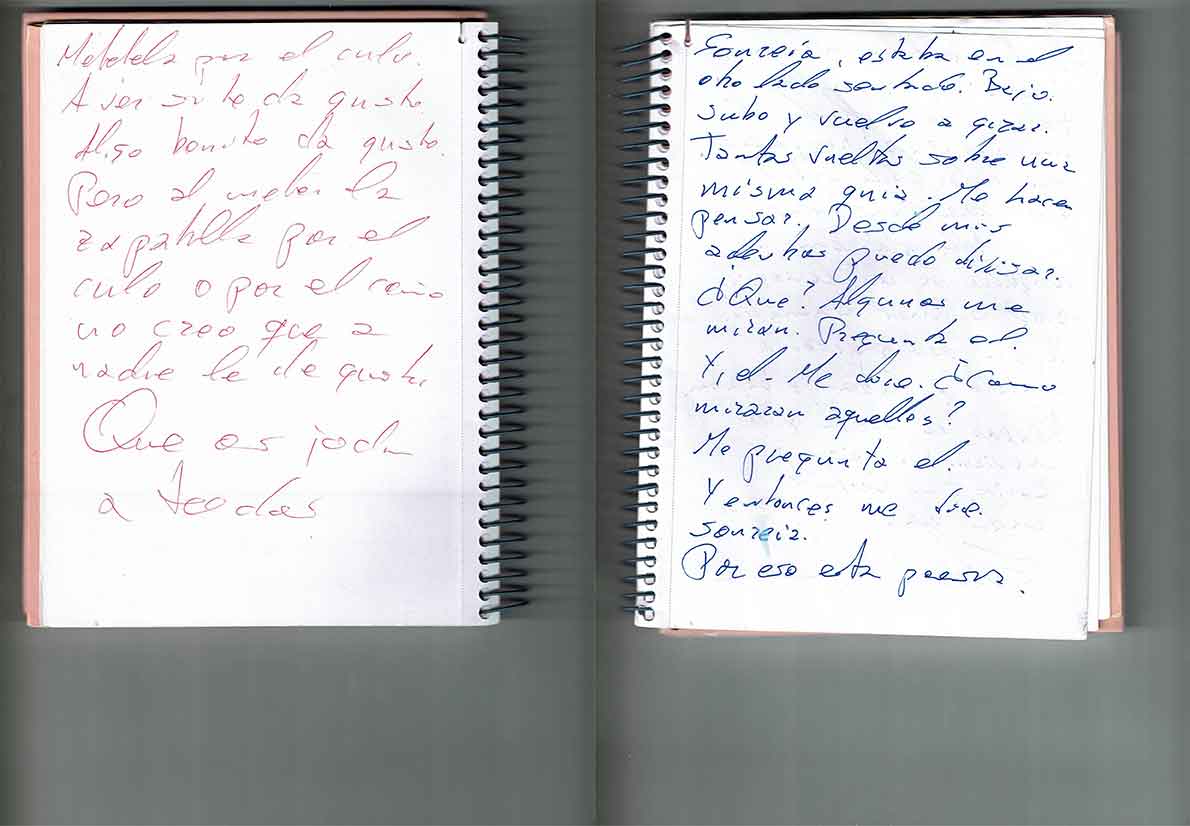 Metetela por el culo.
A ver si te da gusto.
Algo bonito da gusto.
Pero al meter la
zapatilla por el
culo o por el coño
no creo que a
nadie le de gusto.
Que os jodan
a todos
Sonreía, estaba en el
otro lado sentado. Bajo.
Subo y vuelvo a girar.
Tantas vueltas sobre una
misma guia. Me hacen
pensar. Desde mis
adentros puedo divisar.
¿Que? Algunos me
miran. Pregunta el.
Y, el. Me dice. ¿Como
miraran aquellos?
Me pregunta el.
Y entonces me dice.
sonreia.
Por eso esta